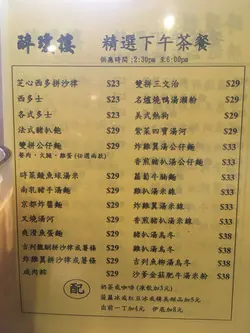 醉瓊樓 精選下午茶餐
供應時間：2:30pm 至6:00pm
芝心西多拼沙律 $23
西多士 $23
各式多士 $23
法式豬扒飽 $29
雙拼公仔麵 $29
餐肉、火腿、雞蛋(任選兩款)
時菜鯪魚球湯米 $29
南乳豬手湯麵 $29
京都炸醬麵 $29
叉燒湯河 $29
爽滑魚蛋麵 $29
吉列龍脷拼沙律或薯條 $29
炸雞翼拼沙律或薯條 $29
咸肉粽 $29
雙拼三文治 $29
名爐燒鴨湯瀨粉 $29
美式熱狗 $29
紫菜四寶湯河 $29
炸雞翼湯公仔麵 $29
香煎豬扒湯公仔麵 $29
蘿蔔牛腩麵 $29
雞扒湯米線 $33
炸雞翼湯米線 $33
香煎豬扒湯米線 $33
豬扒湯烏冬 $38
雞扒湯烏冬 $38
吉列魚柳湯烏冬 $38
沙爹金菇肥牛湯米粉 $38
配
奶茶或咖啡(凍飲加3元)
菠蘿冰或紅豆冰或糖魚甜品加5元
出前一丁加4元 伊底加8元